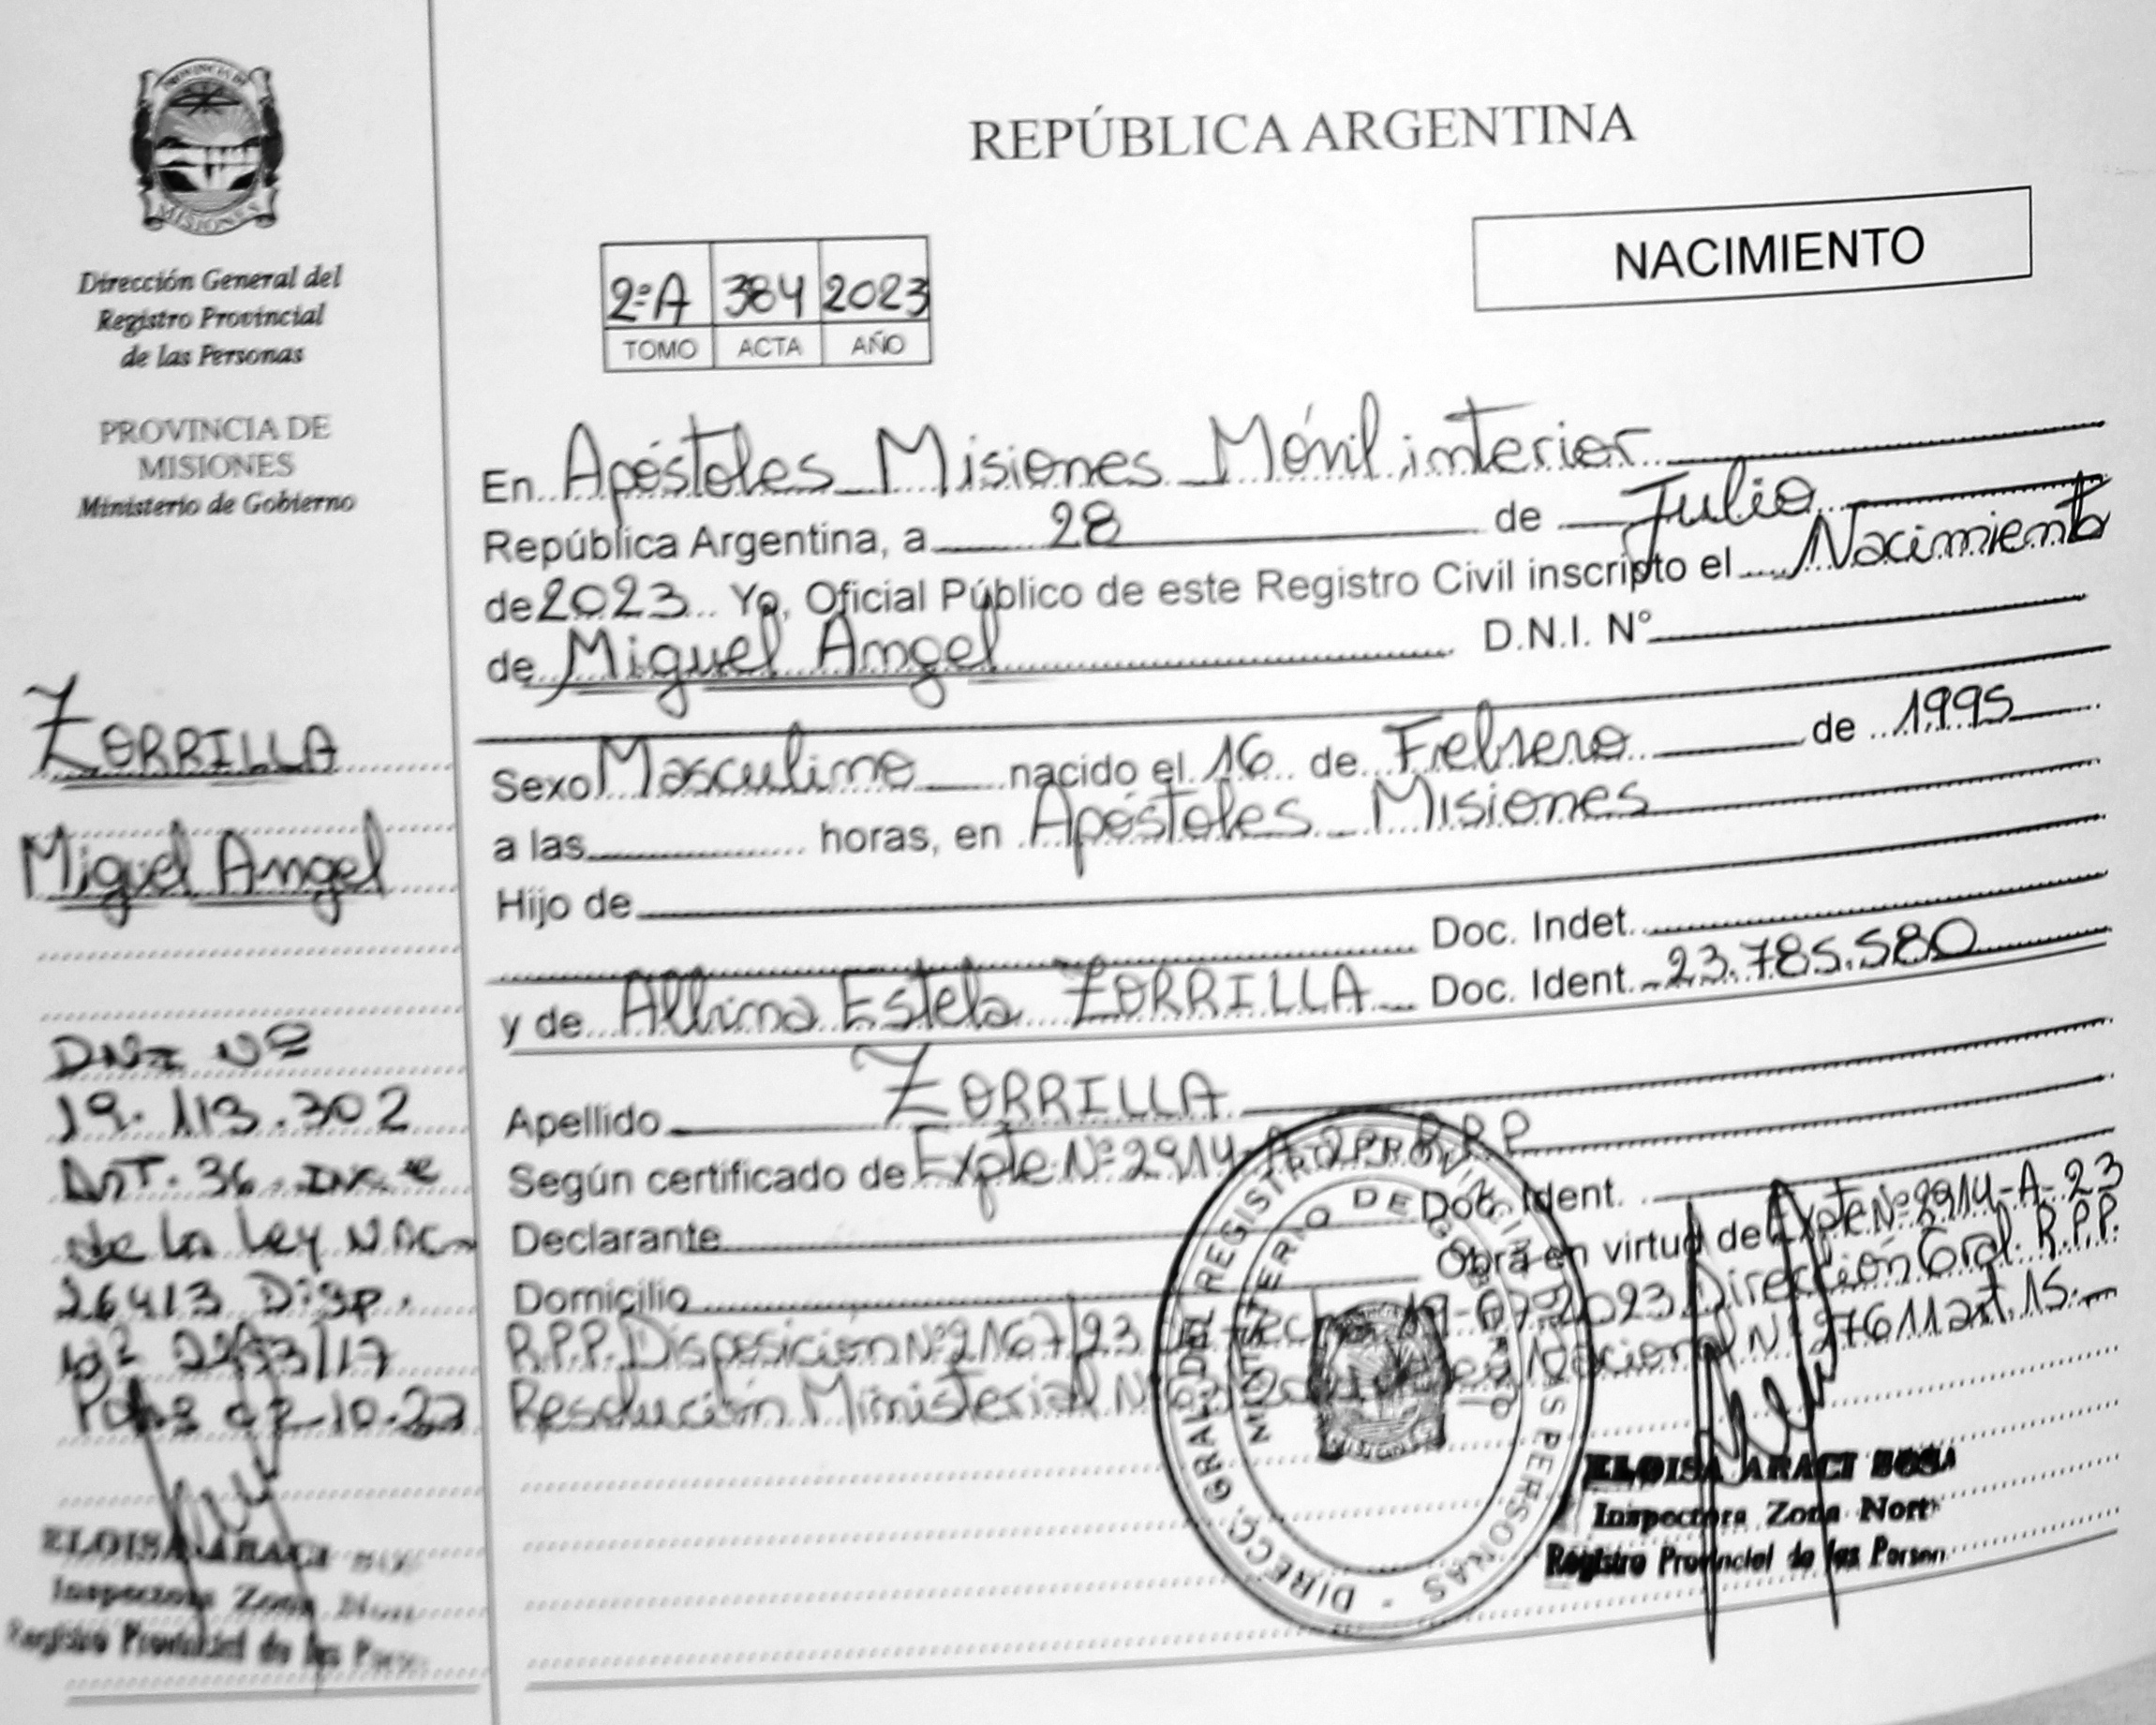 PROVINCIA DE
MISIONES
Dirección General del
Registro Provincial
de las Personas
PROVINCIA DE
MISIONES
Ministerio de Gobierno
ZORRILLA
Miguel Angel
DNI Nº
19.113.302
Art. 36
de la Ley Nac
26413 Disp.
/17
10-23
ELOISA ARACI
Inspectora Zona
Registro Provincial de las
REPÚBLICA ARGENTINA
NACIMIENTO
2ºA 384 2023
TOMO ACTA AÑO
En Apóstoles Misiones Móvil interior
República Argentina, a 28 de Julio
de 2023 Yo, Oficial Público de este Registro Civil inscripto el Nacimiento
de Miguel Angel D.N.I. N°
Sexo Masculino nacido el 16 de Febrero de 1995
a las horas, en Apóstoles Misiones
Hijo de
Doc. Indet.
y de Albina Estela ZORRILLA Doc. Ident. 23.785.580
Apellido ZORRILLA
Según certificado de Expte Nº 2914-A-23 R.P.P
Declarante Doc. Ident.
Domicilio Obra en virtud de Expte Nº 2914-A-23
R.P.P. Disposición Nº 2167/23 2023 Dirección Gral. R.P.P.
Resolución Ministerial Nº Nacional Nº 27611 art. 15.
DIRECC. GRAL. DEL REGISTRO PROVINCIAL DE LAS PERSONAS
MINISTERIO DE GOBIERNO
MISIONES
ELOISA ARACI
Inspectora Zona Nort
Registro Provincial de las Person